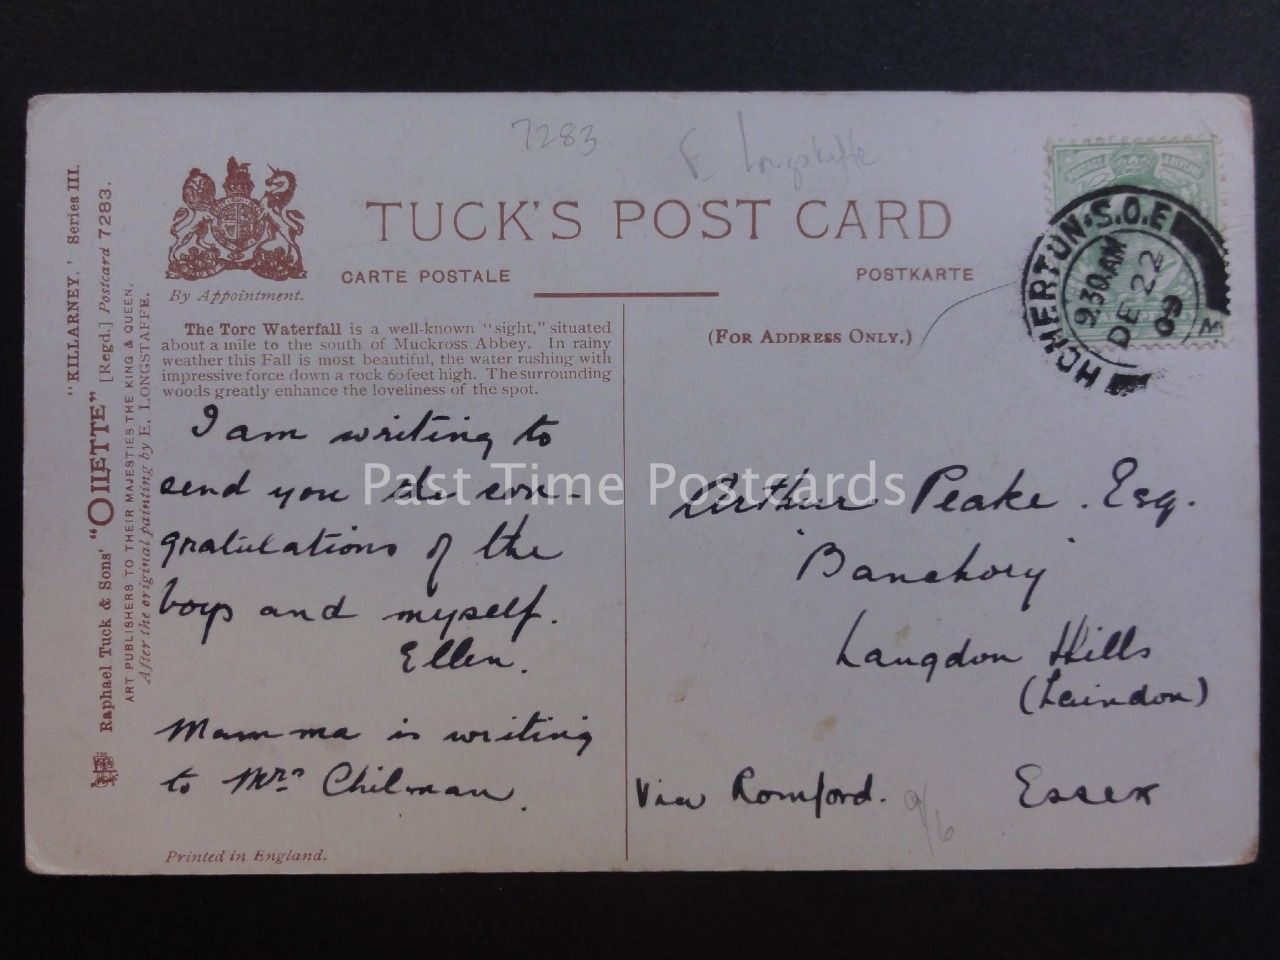 7283
E Longstaffe
TUCK'S POST CARD
CARTE POSTALE
POSTKARTE
By Appointment.
(FOR ADDRESS ONLY.)
"KILLARNEY.' Series III.
Raphael Tuck & Sons' "OILETTE" [Regd.] Postcard 7283.
ART PUBLISHERS TO THEIR MAJESTIES THE KING & QUEEN.
After the original painting by E. LONGSTAFFE.
The Torc Waterfall is a well-known "sight," situated
about a mile to the south of Muckross Abbey. In rainy
weather this Fall is most beautiful, the water rushing with
impressive force down a rock 60 feet high. The surrounding
woods greatly enhance the loveliness of the spot.
I am writing to
send you the con-
gratulations of the
boys and myself.
Ellen.
Mamma is writing
to Mrs Chilman.
Printed in England.
HOMERTON·S.O.E
9.30AM
DE 22
09
Arthur Peake. Esq.
'Banchory'
Langdon Hills
(Laindon)
Via Romford. Essex
9/6
Past Time Postcards